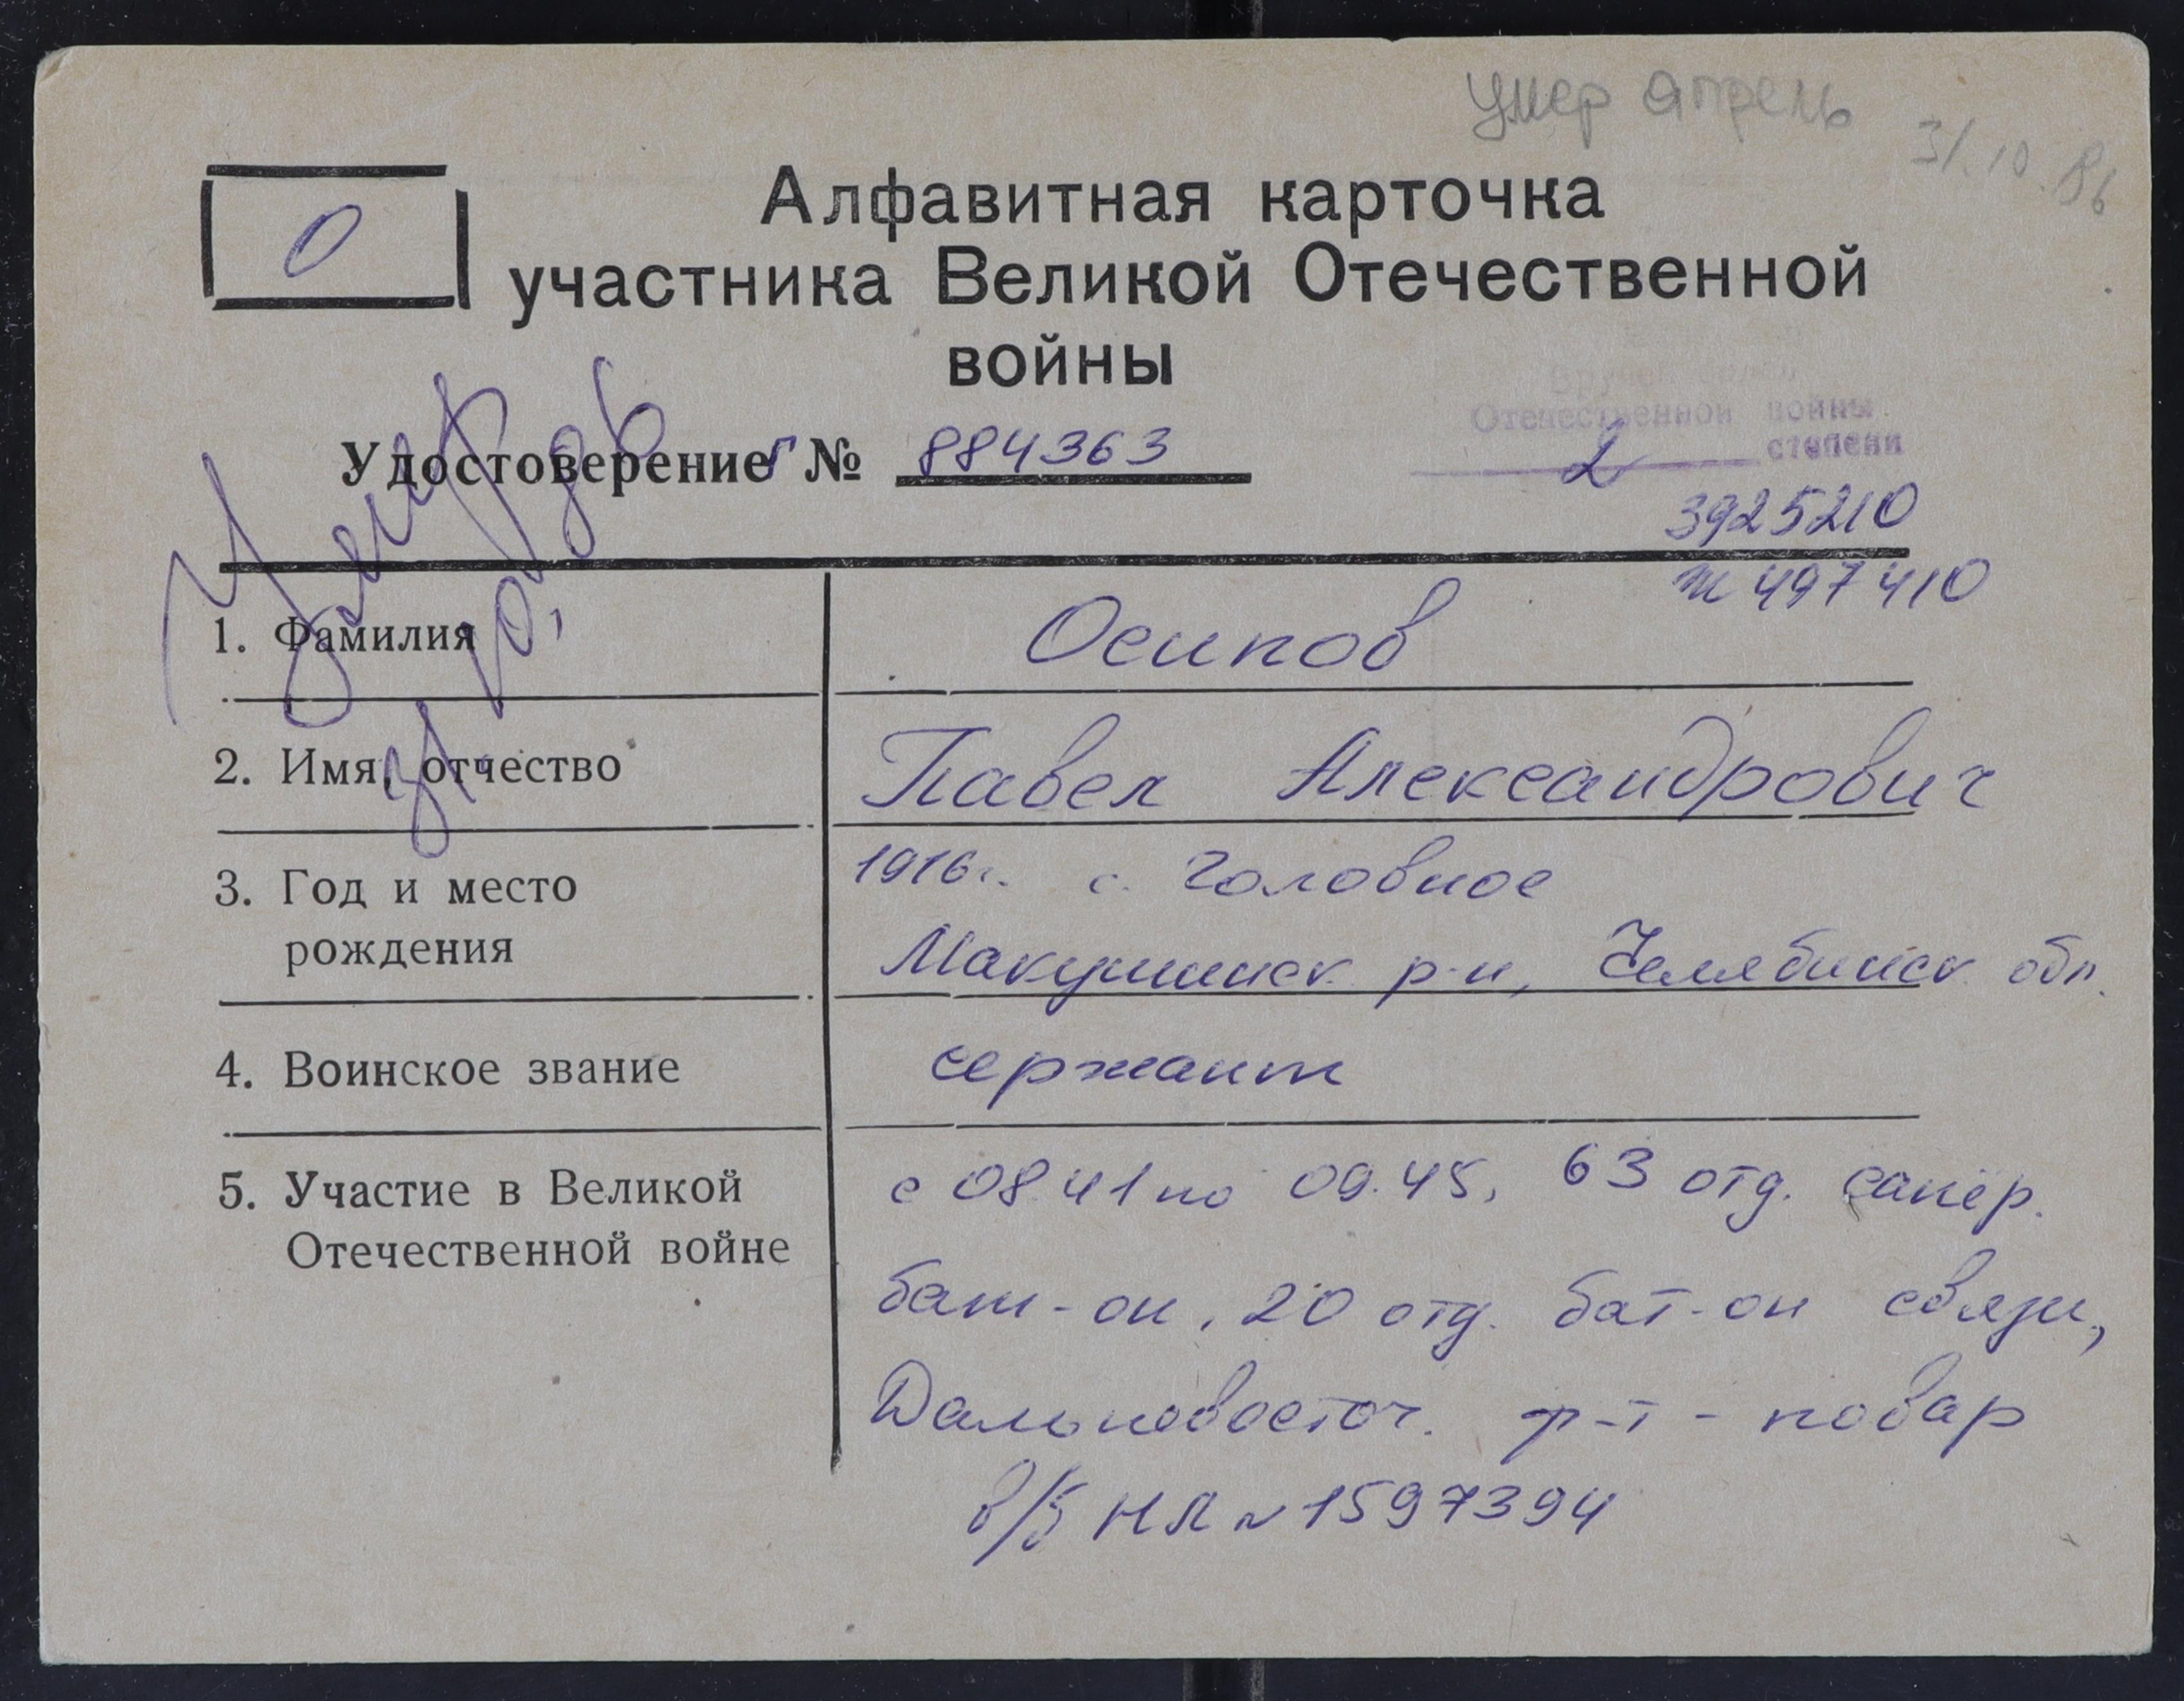 умер апрель
31.10.86
О
Алфавитная карточка
участника Великой Отечественной
войны
Отечественной войны
2 степени
Удостоверение Г № 884363
3925210
т 497410
Умер
31.10.86
1. Фамилия Осипов
2. Имя, отчество Павел Александрович
3. Год и место 1916г. с. Головное
рождения Макушинск. р-н, Челябинск обл.
4. Воинское звание сержант
5. Участие в Великой с 08.41 по 09.45, 63 отд. сапер.
Отечественной войне бат-он, 20 отд. бат-он связи,
Дальневосточ. ф-т - повар
в/б НЛ № 1597394